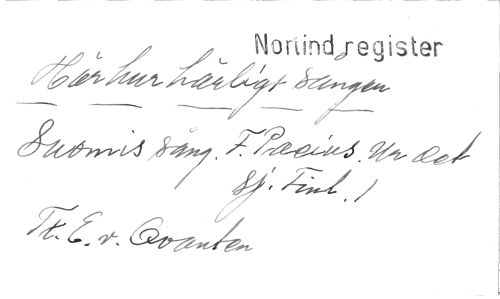 Norlind register
Hör hur härligt sången
Suomis sång. F. Pacius. Ur det
sj. Finl. 1
Tx. E. v. Qvanten